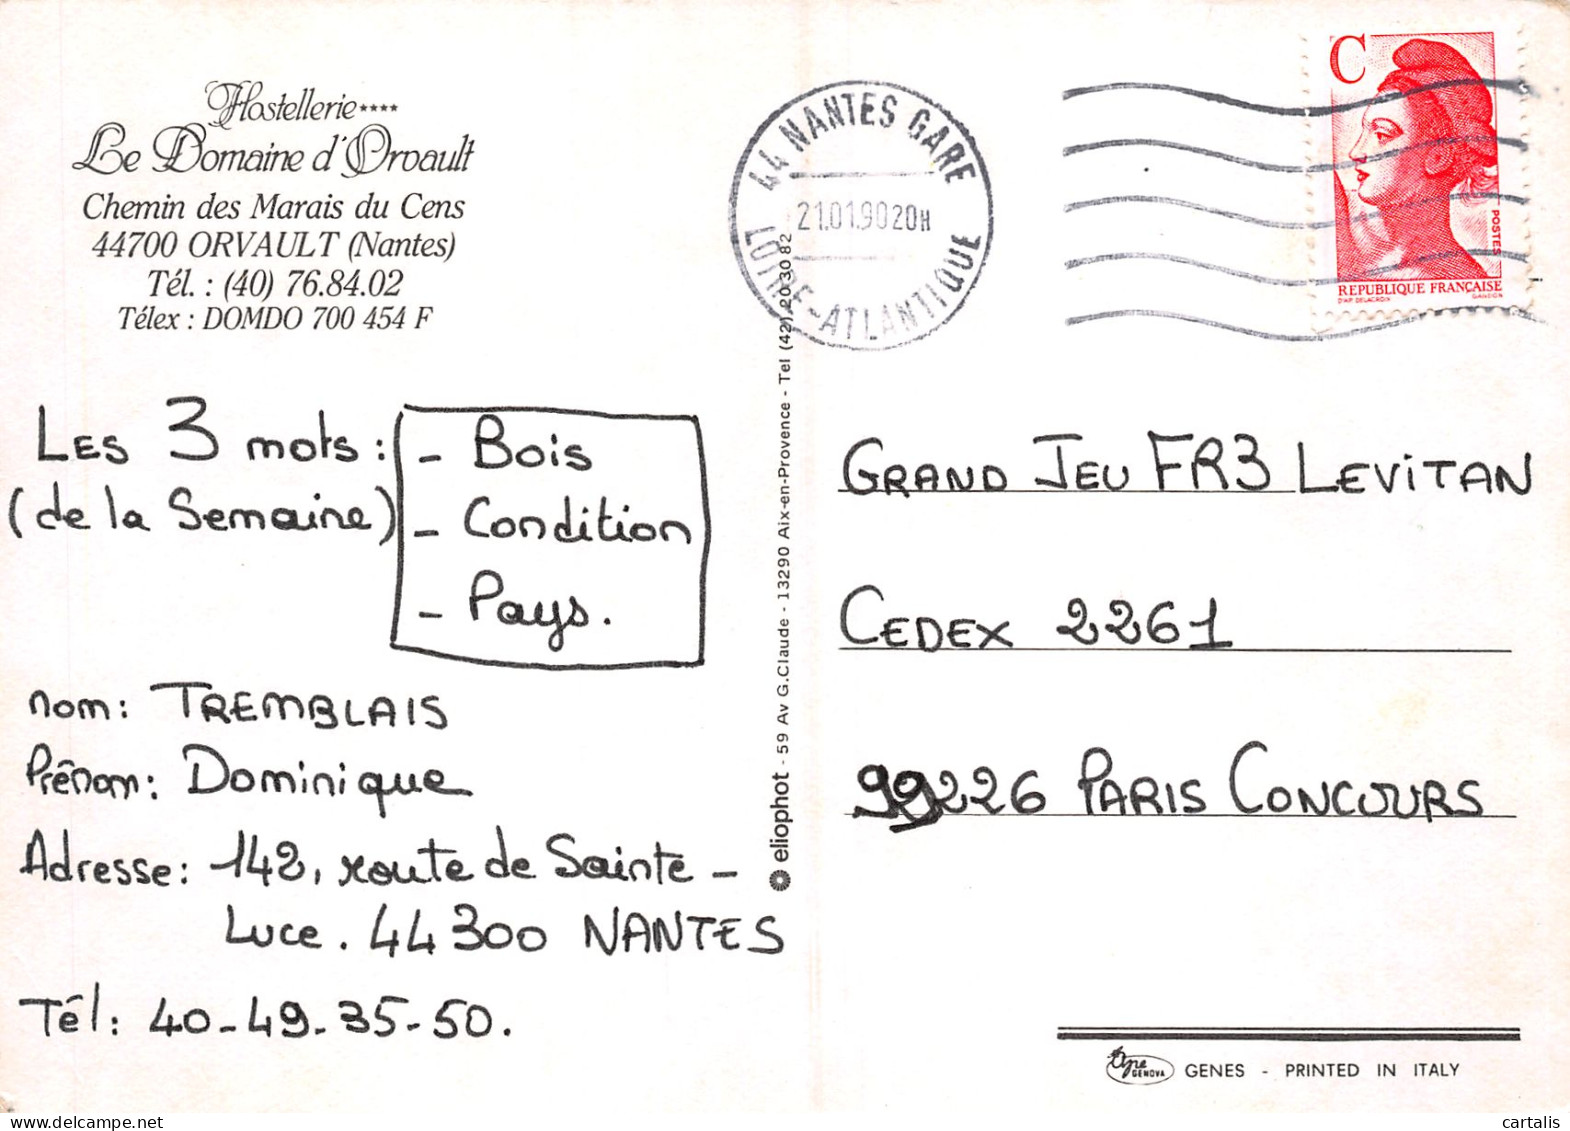 Hostellerie****
Le Domaine d'Orvault
Chemin des Marais du Cens
44700 ORVAULT (Nantes)
Tél. : (40) 76.84.02
Télex : DOMDO 700 454 F
LES 3 mots :
(de la Semaine)
- Bois
- Condition
- Pays.
nom: TREMBLAIS
Prénom: Dominique
Adresse: 142, route de Sainte-
Luce. 44300 NANTES
Tél: 40-49-35-50.
eliophot - 59 Av G.Claude - 13290 Aix-en-Provence - Tel (42) 20 30 82
44 NANTES GARE
21.01.90 20H
LOIRE-ATLANTIQUE
C
POSTES
REPUBLIQUE FRANÇAISE
D'AP. DELACROIX GANDON
GRAND JEU FR3 LEVITAN
CEDEX 2261
99226 PARIS CONCOURS
GENOVA
GENES - PRINTED IN ITALY
cartalis